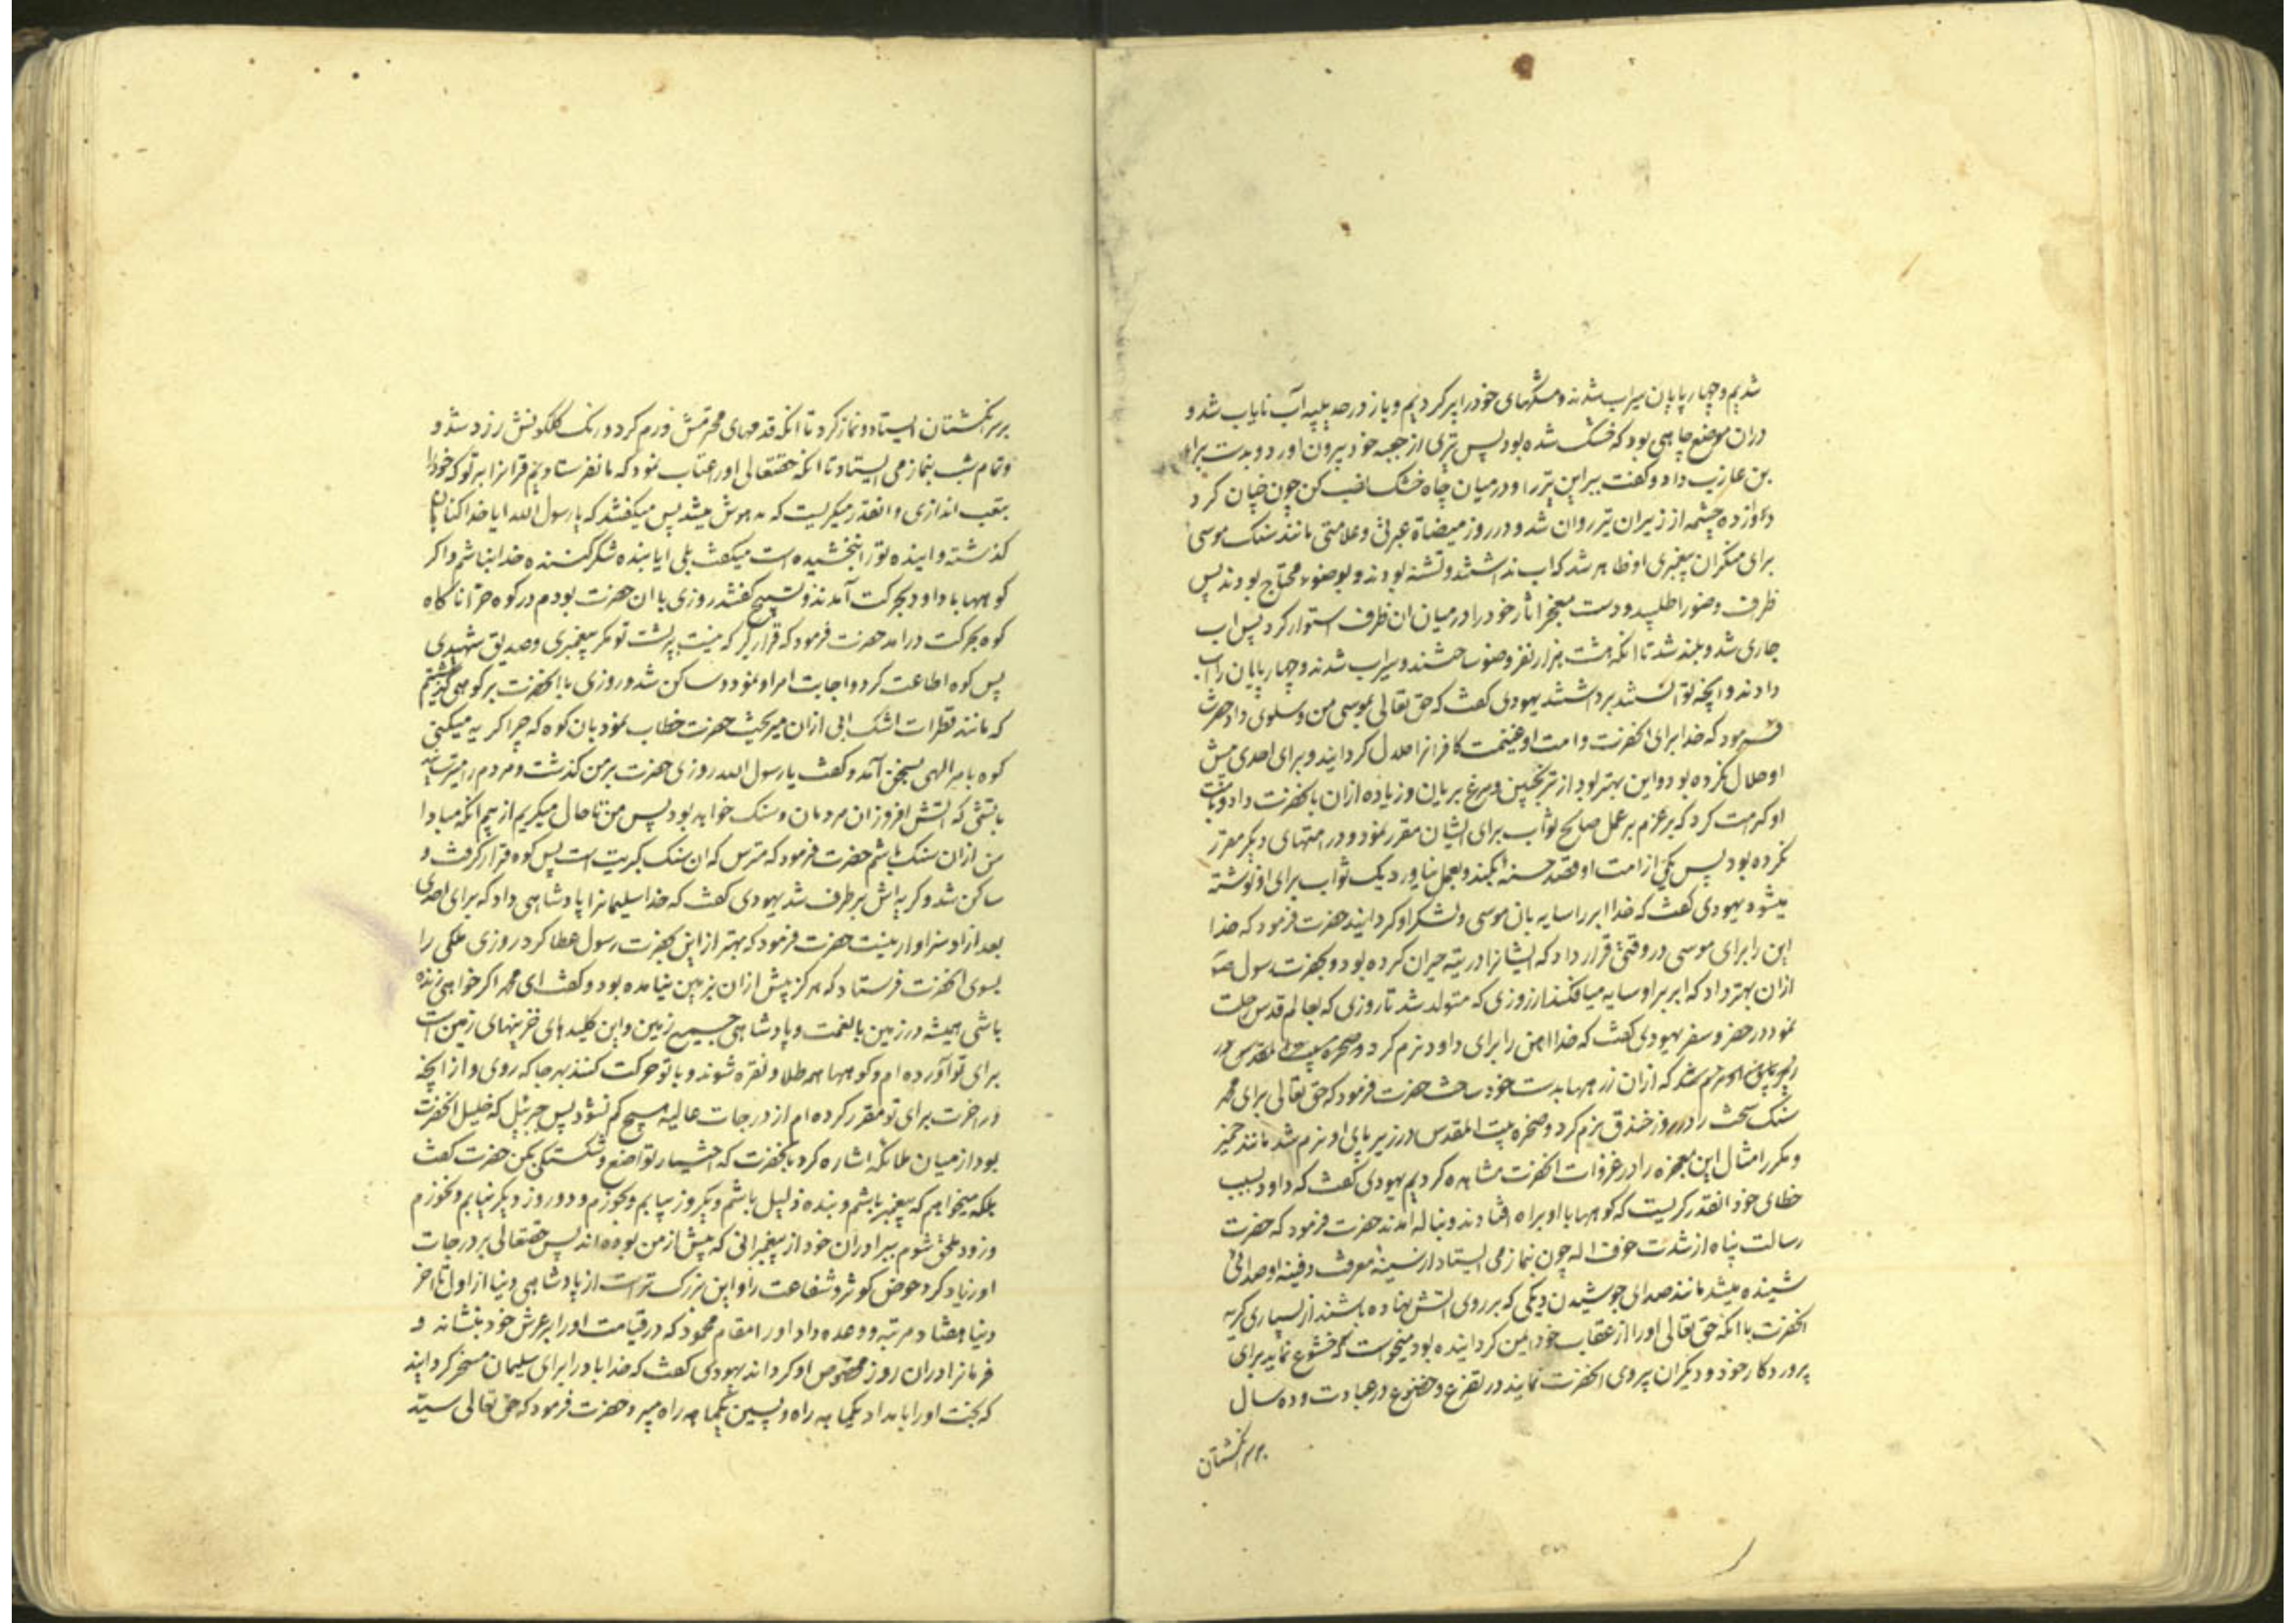 شدیم و چهارپایان سیراب شدند و مشکهای خود را پر کردیم و باز در حدیبیه آب نایاب شد و
دران موضع چاهی بود که خشک شده بود پس تیری از جعبه خود بیرون اورد و بدست براء
بن عازب داد و کفت ببر این تیر را و در میان چاه خشک نصب کن چون چنان کرد
دوازده چشمه از زیر ان تیر روان شد و در روز میضاة عبرتی و علامتی مانند سنک موسی
برای منکران پیغمبری او ظاهر شد که اب نداشتند و تشنه بودند و بوضوء محتاج بودند پس
ظرف وضو را طلبید و دست معجز اثار خود را در میان ان ظرف استوار کرد پس اب
جاری شد و بلند شد تا انکه هشت هزار نفر وضو ساختند و سیراب شدند و چهارپایان را آب
دادند و انچه توانستند برداشتند یهودی کفت که حق تعالی بموسی من و سلوی داد حضرت
فرمود که خدا برای انحضرت و امت او غنیمت کافرانرا حلال کردانید و برای احدی پیش
او حلال نکرده بود و این بهتر بود از ترنجبین و مرغ بریان و زیاده ازان بانحضرت داد و بامت
او کرامت کرد که بر عزم بر عمل صالح ثواب برای ایشان مقرر نمود و در امتهای دیکر مقرر
نکرده بود پس یکی از امت او قصد حسنه بکند و بعمل نیاورد یک ثواب برای او نوشته
میشود یهودی کفت که خدا ابر را سایه بان موسی و لشکر او کردانید حضرت فرمود که خدا
این را برای موسی در وقتی قرار داد که ایشانرا در تیه حیران کرده بود و بحضرت رسول ص
ازان بهتر داد که ابر بر او سایه میافکند از روزی که متولد شد تا روزی که بعالم قدس رحلت
نمود در حضر و سفر یهودی کفت که خدا اهن را برای داود نرم کرد
که ازان زرهها بدست خود ساخت حضرت فرمود که حق تعالی برای محمد
سنک سخت را در روز خندق نرم کرد و صخره بیت المقدس در زیر پای او نرم شد مانند خمیر
و مکرر امثال این معجزه را در غزوات انحضرت مشاهده کردیم یهودی کفت که داود بسبب
خطای خود انقدر کریست که کوهها با او براه افتادند و بناله امدند حضرت فرمود که حضرت
رسالت پناه از شدت خوف اله چون بنماز می ایستاد از سینه معرفت دفینه او صدائی
شنیده میشد مانند صدای جوشیدن دیکی که بر روی اتش نهاده باشند از بسیاری کریه
انحضرت با انکه حق تعالی او را از عقاب خود ایمن کردانیده بود میخواست که خشوع نماید برای
پروردکار خود و دیکران پیروی انحضرت نمایند در تضرع و خضوع در عبادت و ده سال
بر سر انکشتان
بر سر انکشتان ایستاد و نماز کرد تا انکه قدمهای محترمش ورم کرد و رنک کلکونش زرد شد و
و تمام شب بنماز می ایستاد تا انکه حقتعالی او را عتاب نمود که ما نفرستادیم قرانرا بر تو که خود را
بتعب اندازی و انقدر میکریست که مدهوش میشد پس میکفتند که یا رسول الله ایا خدا کناهان
کذشته و اینده تو را نبخشیده است میکفت بلی ایا بنده شکر کننده خدا نباشم و اکر
کوهها با داود بحرکت آمدند و تسبیح کفتند روزی با ان حضرت بودم در کوه حرا ناکاه
کوه بحرکت درامد حضرت فرمود که قرار کیر که نیست بر پشت تو مکر پیغمبری و صدیق شهیدی
پس کوه اطاعت کرد و اجابت امر او نمود و ساکن شد و روزی با انحضرت بر کوهی کذشتم
که مانند قطرات اشک ابی ازان میریخت حضرت خطاب نمود بان کوه که چرا کریه میکنی
کوه بامر الهی بسخن آمد و کفت یا رسول الله روزی حضرت بر من کذشت و مردم را میترسانید
باتشی که اتش افروز ان مردمان و سنک خواهد بود پس من تا حال میکریم از بیم انکه مبادا
من ازان سنک باشم حضرت فرمود که مترس که ان سنک کبریت است پس کوه قرار کرفت و
ساکن شد و کریه اش برطرف شد یهودی کفت که خدا سلیمانرا پادشاهی داد که برای احدی
بعد از او سزاوار نیست حضرت فرمود که بهتر از این بحضرت رسول عطا کرد روزی ملکی را
بسوی انحضرت فرستاد که هرکز پیش ازان بزمین نیامده بود و کفت ای محمد اکر خواهی زنده
باشی همیشه در زمین با نعمت و پادشاهی جمیع زمین و این کلیدهای خزینهای زمین است
برای تو آورده ام و کوهها همه طلا و نقره شوند و با تو حرکت کنند بهر جا که روی و از انچه
در اخرت برای تو مقرر کرده ام از درجات عالیه هیچ کم نشود پس جبرئیل که خلیل انحضرت
بود از میان ملائکه اشاره کرد بانحضرت که اختیار تواضع و شکستکی بکن حضرت کفت
بلکه میخواهم که پیغمبر باشم و بنده ذلیل باشم و یکروز بیابم و بخورم و دو روز دیکر نیابم و نخورم
و زود ملحق شوم ببرادران خود از پیغمبرانی که پیش از من بوده اند پس حقتعالی بر درجات
او زیاد کرد حوض کوثر و شفاعت را و این بزرک تر است از پادشاهی دنیا از اول تا اخر
دنیا هفتاد مرتبه و وعده داد او را مقام محمود که در قیامت او را بر عرش خود بنشاند و
فرمانرا دران روز مخصوص او کرداند یهودی کفت که خدا باد را برای سلیمان مسخر کردانید
که تخت او را بامداد یکماهه راه و پسین یکماهه راه میبرد حضرت فرمود که حق تعالی سید